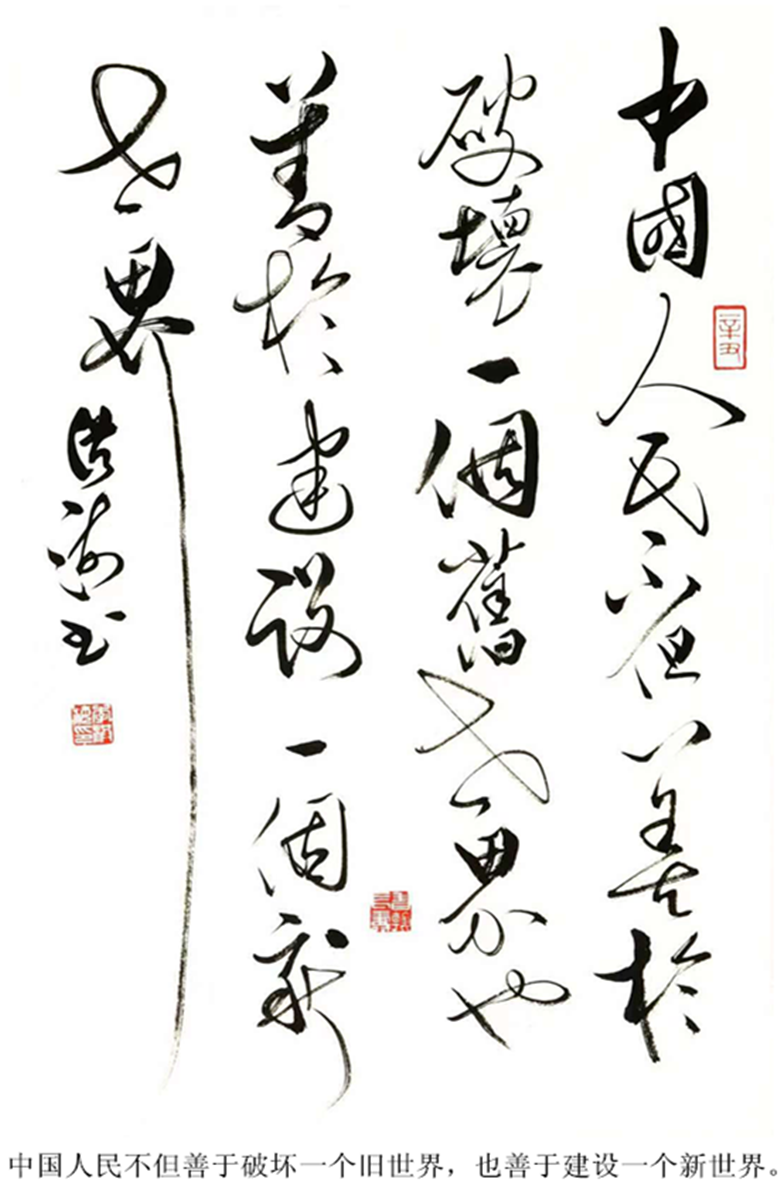 中國人民不但善於
破壞一個舊世界也
善於建設一個新
世界
洪海書
辛丑
中国人民不但善于破坏一个旧世界，也善于建设一个新世界。